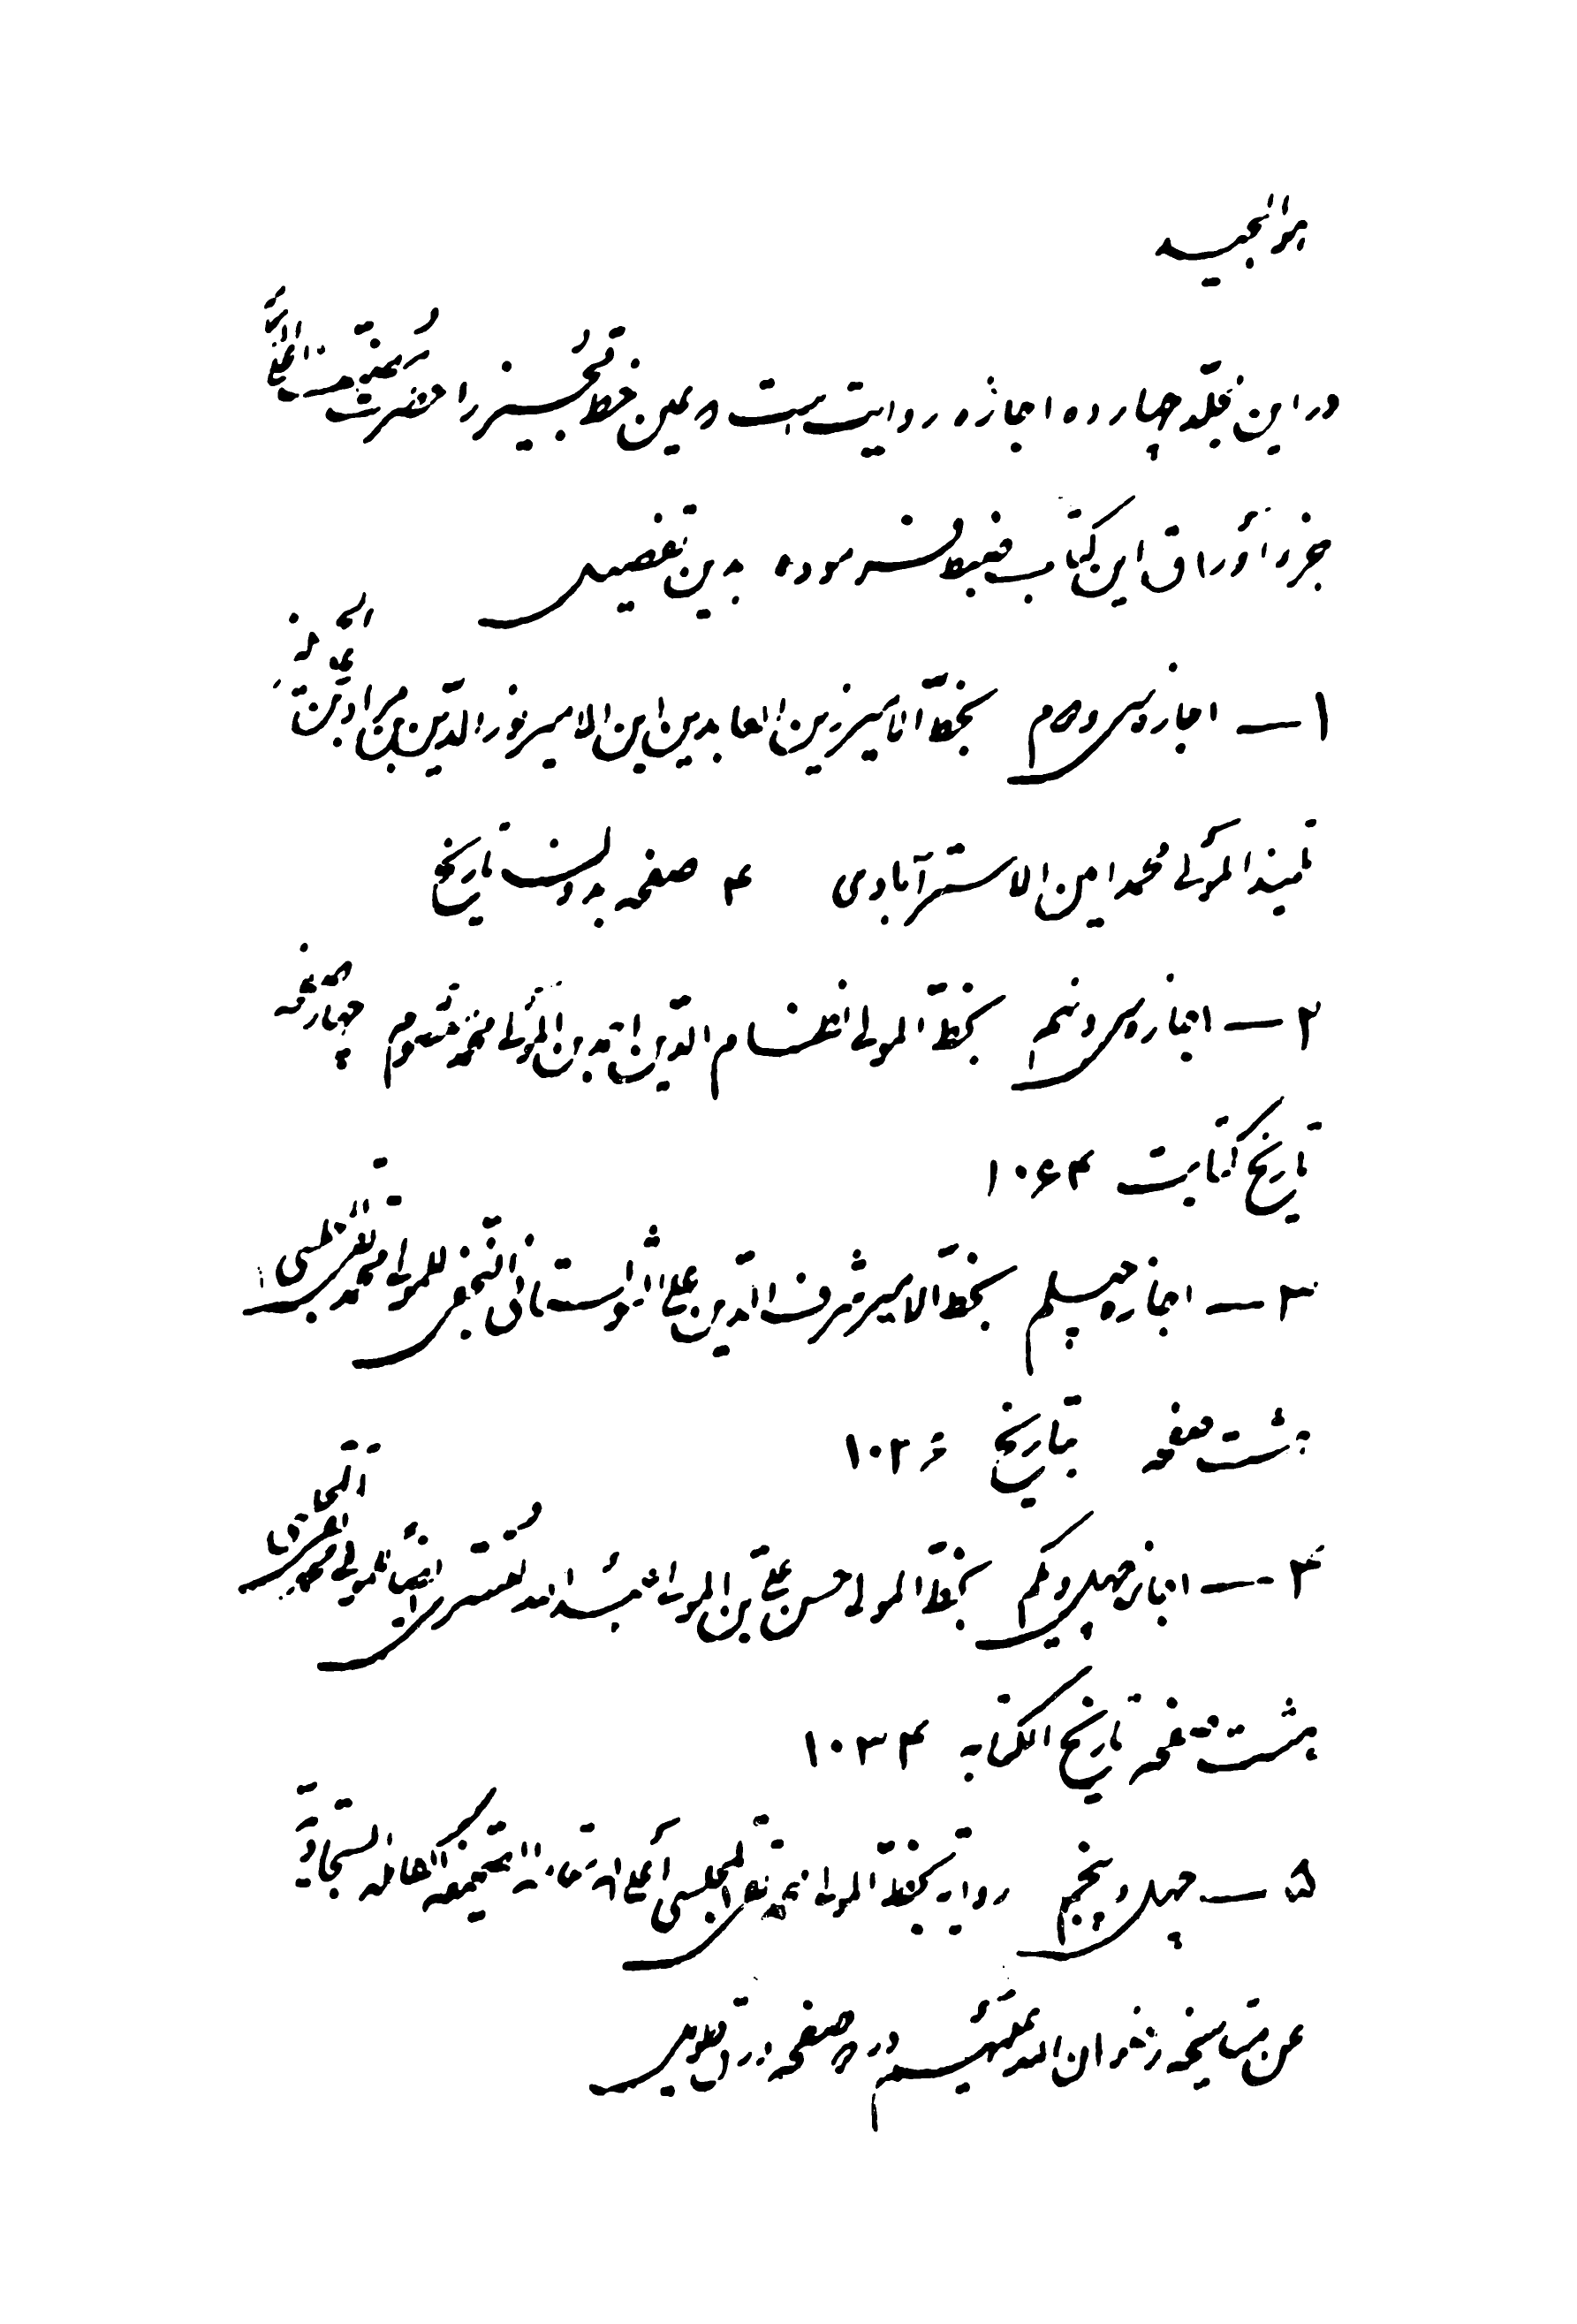 هو المجید
در این مجلد چهارده اجازه روایت است که عین خط مجیز را حضرت علامه
جزء اوراق این کتاب ضبط فرموده بدین تفصیل
۱ — اجازه سی و هشتم بخط الامیر زین العابدین ابن الامیر نور الدین بن مراد بن
تلمیذ المولی محمد امین الاسترآبادی ۴ صفحه بدون تاریخ
۲ — اجازه سی و نهم بخط المولی نظام الدین احمد بن المولی محمد معصوم چهار صفحه
تاریخ کتابت ۱۰۶۴
۳ — اجازه چهلم بخط الامیر شرف الدین علی الشولستانی النجفی للمولی محمد تقی المجلسی
هشت صفحه بتاریخ ۱۰۳۶
۴ — اجازه چهل و یکم بخط المولی حسن علی بن المولی عبدالله التستری ایضا للمولی محمد تقی المجلسی
هشت صفحه تاریخ الکتابه ۱۰۳۴
۵ — چهل و پنجم روایة بخط المولی محمد تقی المجلسی اعلی الله مقامه الصحیفة الکاملة السجادیة
عن مشایخه رضوان الله علیهم در ۸ صفحه ورق طویل